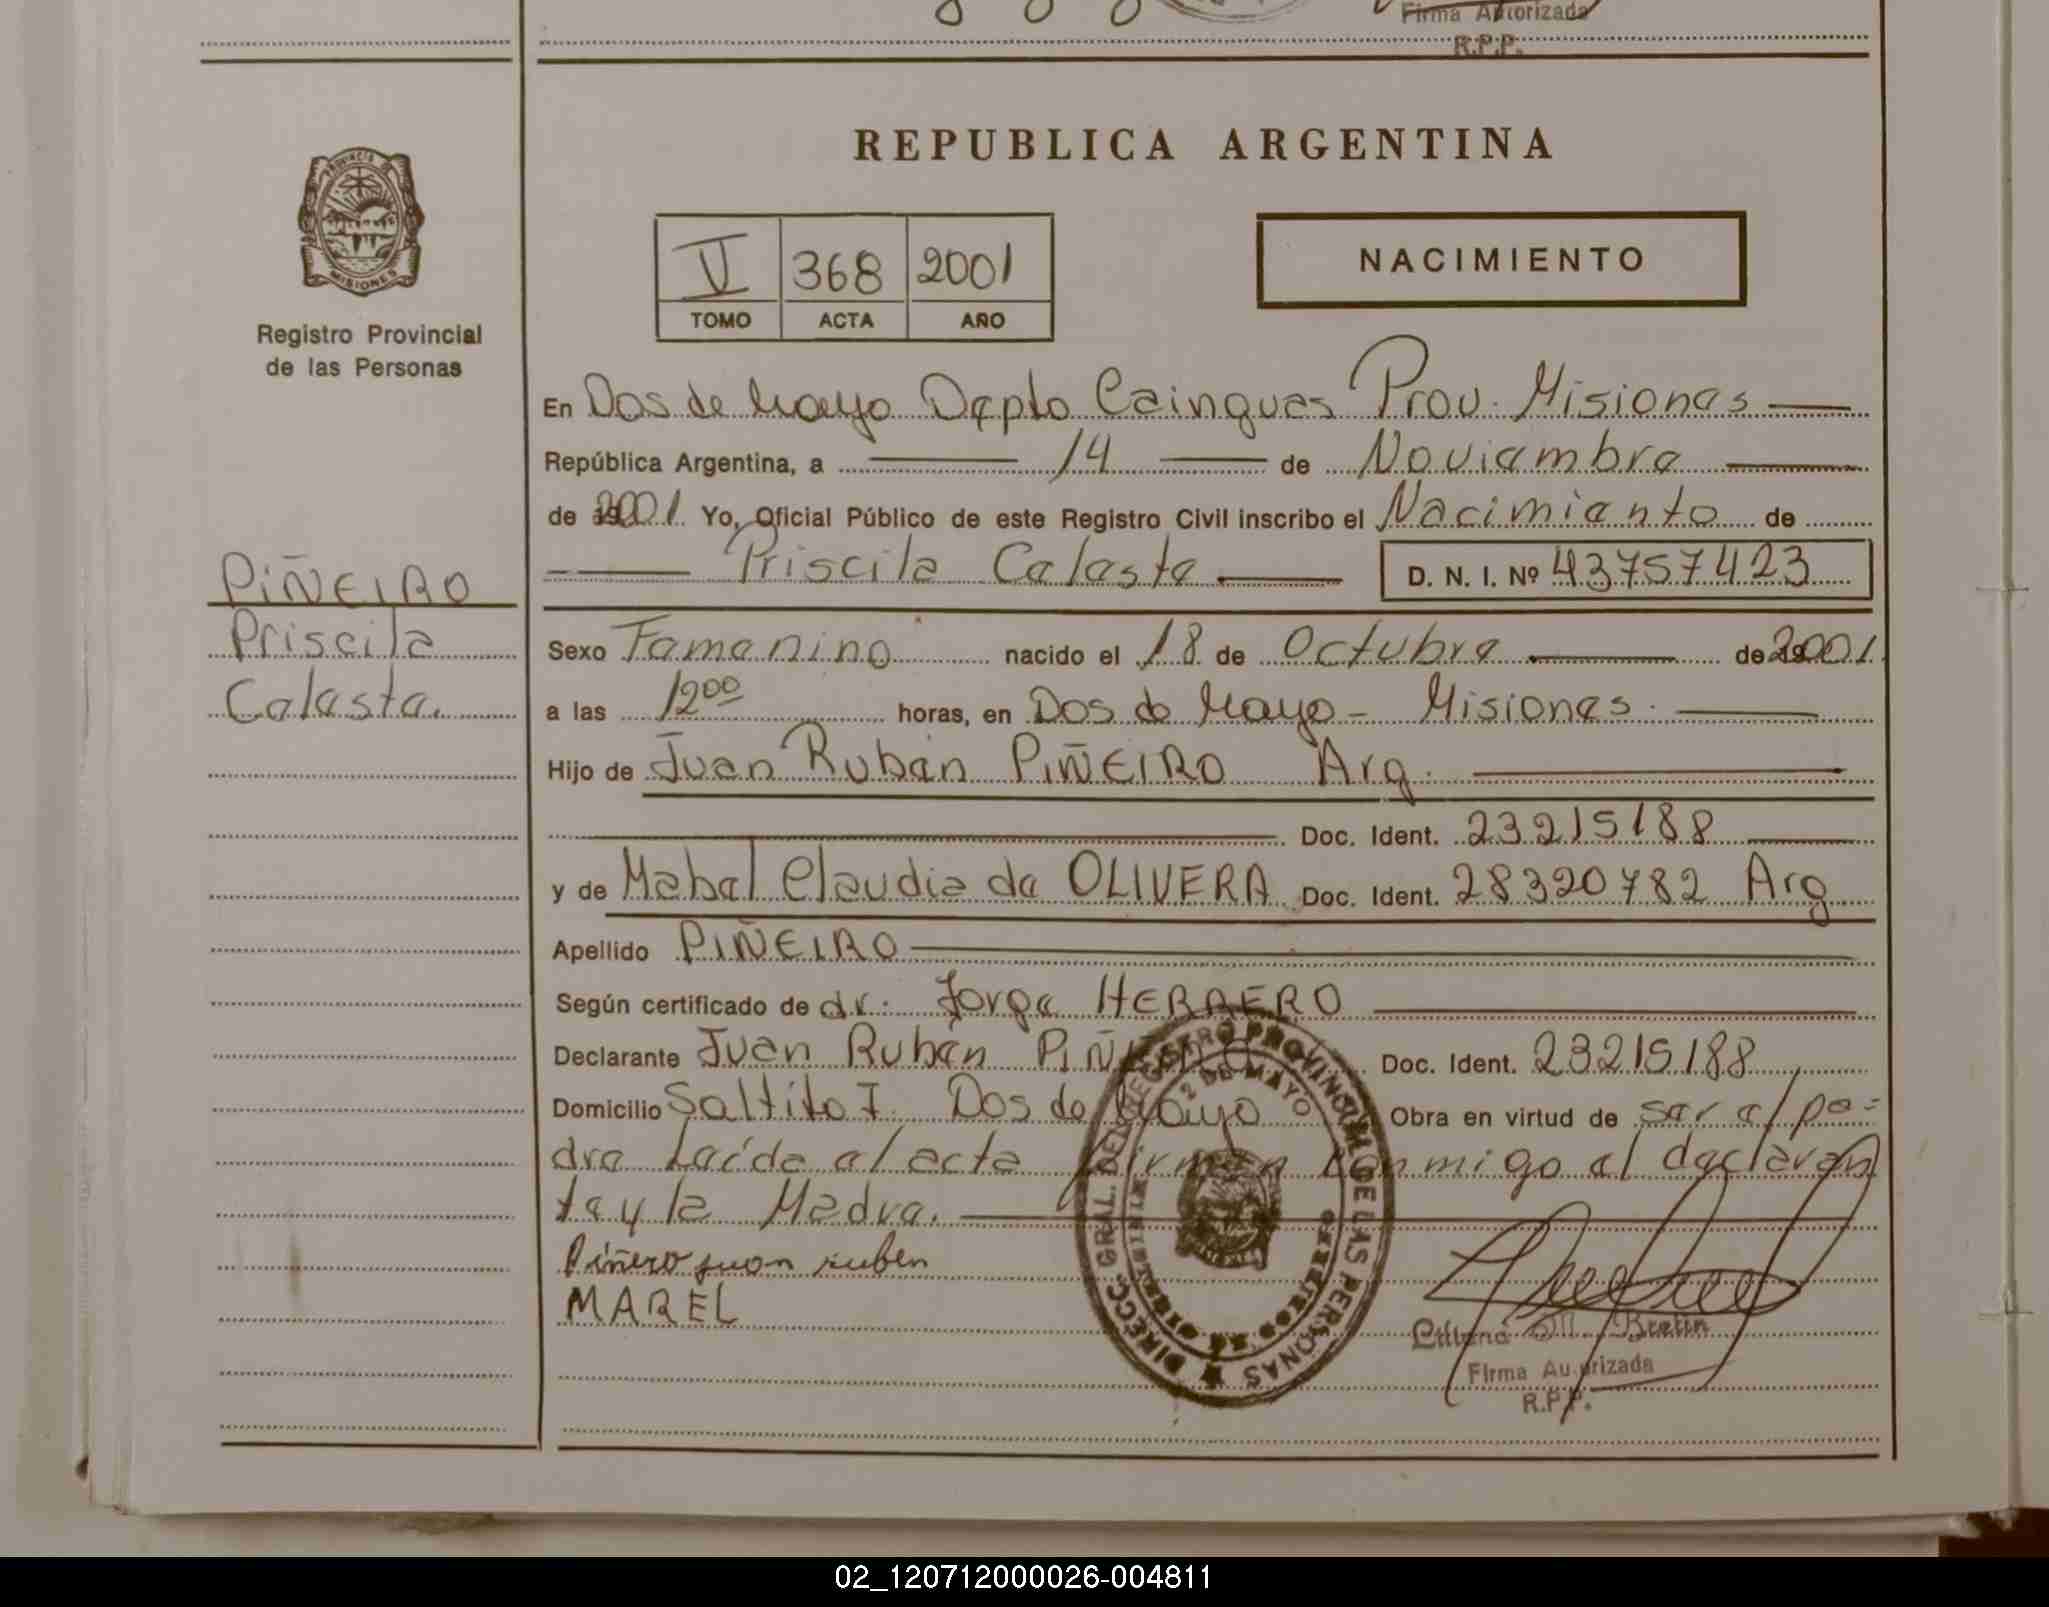 Firma Autorizada
R.P.P.
REPUBLICA ARGENTINA
PROVINCIA DE MISIONES
Registro Provincial
de las Personas
V 368 2001
TOMO ACTA AÑO
NACIMIENTO
En Dos de Mayo Depto Cainguas Prov. Misiones
República Argentina, a 14 de Noviembre
de 2001 Yo, Oficial Público de este Registro Civil inscribo el Nacimiento de
Priscila Celeste D. N. I. Nº 43757423
PIÑEIRO
Priscila
Celeste.
Sexo Femenino nacido el 18 de Octubre de 2001
a las 12 00 horas, en Dos de Mayo - Misiones.
Hijo de Juan Ruben PIÑEIRO Arg.
Doc. Ident. 23215188
y de Mabel Claudia de OLIVERA Doc. Ident. 28320782 Arg
Apellido PIÑEIRO
Según certificado de dr: Jorge HERRERO
Declarante Juan Ruben PIÑEIRO Doc. Ident. 23215188
Domicilio Saltito I Dos de Mayo Obra en virtud de ser el pa=
dre Leída el acta firman conmigo el declaran
te y la Madre.
Piñero juan ruben
MABEL
DIRECC. GRAL. DEL REGISTRO PROVINCIAL DE LAS PERSONAS
2 DE MAYO
Liliana M. Bretin
Firma Autorizada
R.P.P.
02_120712000026-004811